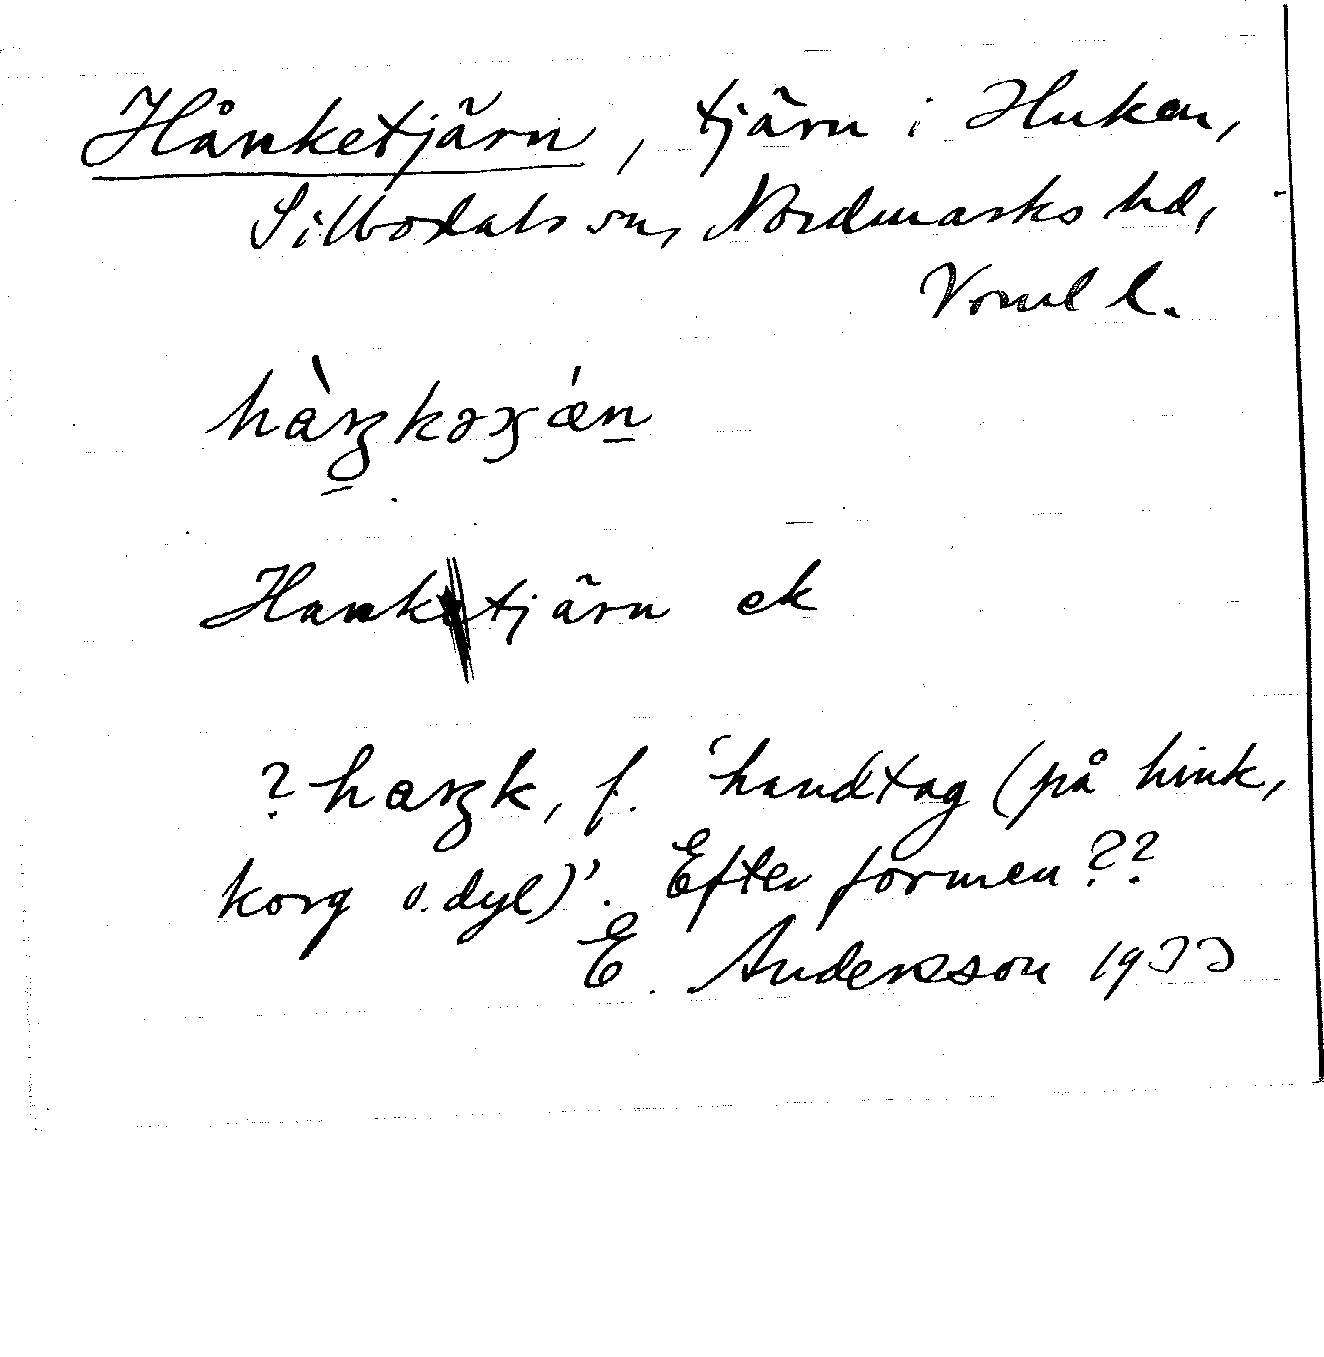 Hånketjärn, tjärn i Huken,
Silbodals sn, Nordmarks hd,
Vrml l.
hàŋkəɣǽn
Hanketjärn ek
? haŋk, f. 'handtag (på hink,
korg o.dyl)'. Efter formen??
E. Andersson 1933